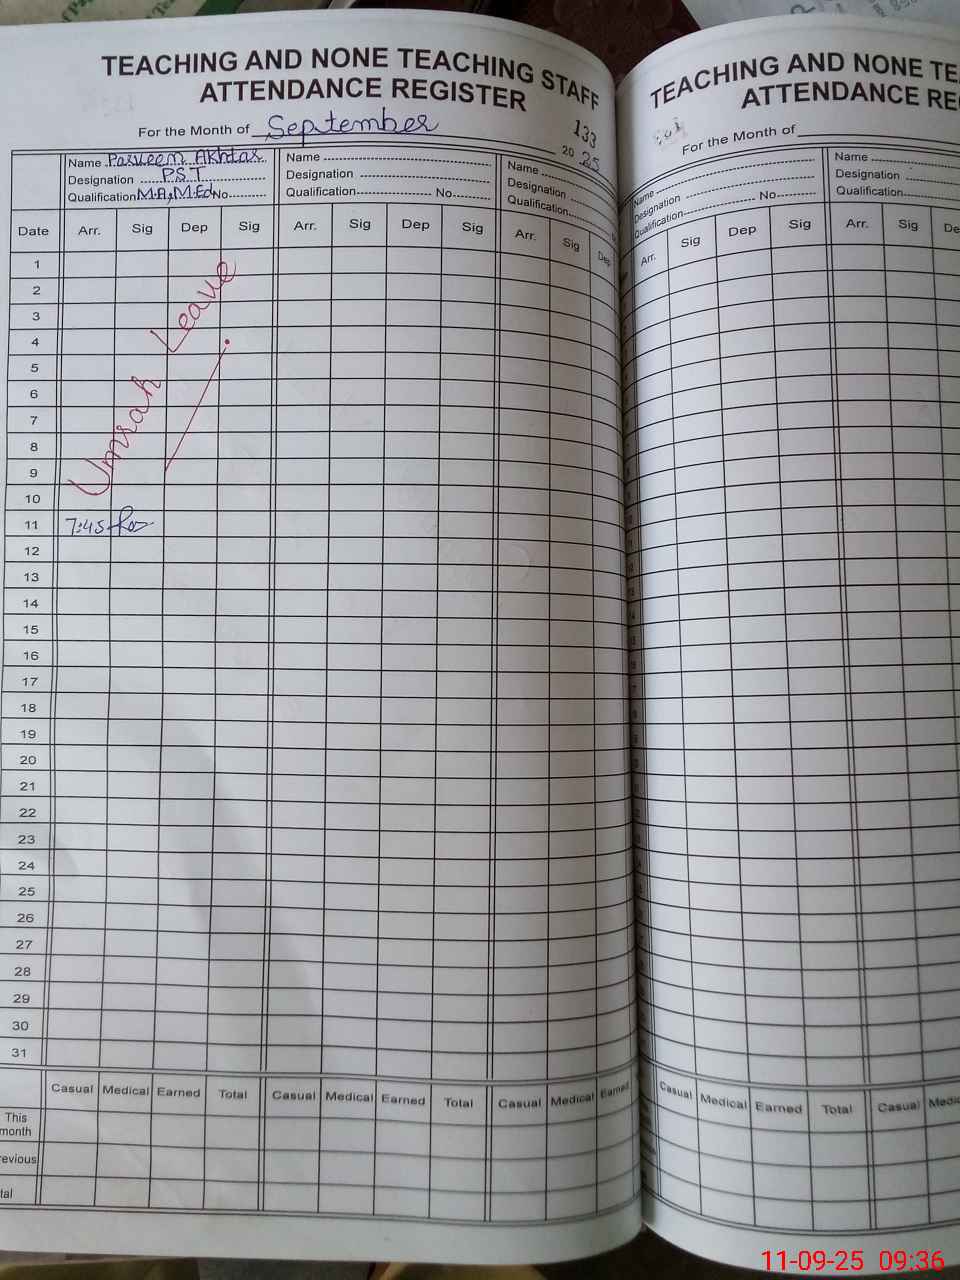 TEACHING AND NONE TEACHING STAFF
ATTENDANCE REGISTER
133
For the Month of September 2025
Name Parveem Akhtar
Designation P.S.T
Qualification M.A, M.Ed No
Name
Designation
Qualification No
Name
Designation
Qualification
Date Arr. Sig Dep Sig Arr. Sig Dep Sig Arr. Sig Dep
1
2
3
4
5
6
7
8
9
10
11 7:45
12
13
14
15
16
17
18
19
20
21
22
23
24
25
26
27
28
29
30
31
Umrah Leave
Casual Medical Earned Total Casual Medical Earned Total Casual Medical Earned
This
month
revious
tal
TEACHING AND NONE TEA
ATTENDANCE RE
For the Month of
Name
Designation
Qualification No
Name
Designation
Qualification
Arr. Sig Dep Sig Arr. Sig De
Casual Medical Earned Total Casual Medic
11-09-25 09:36